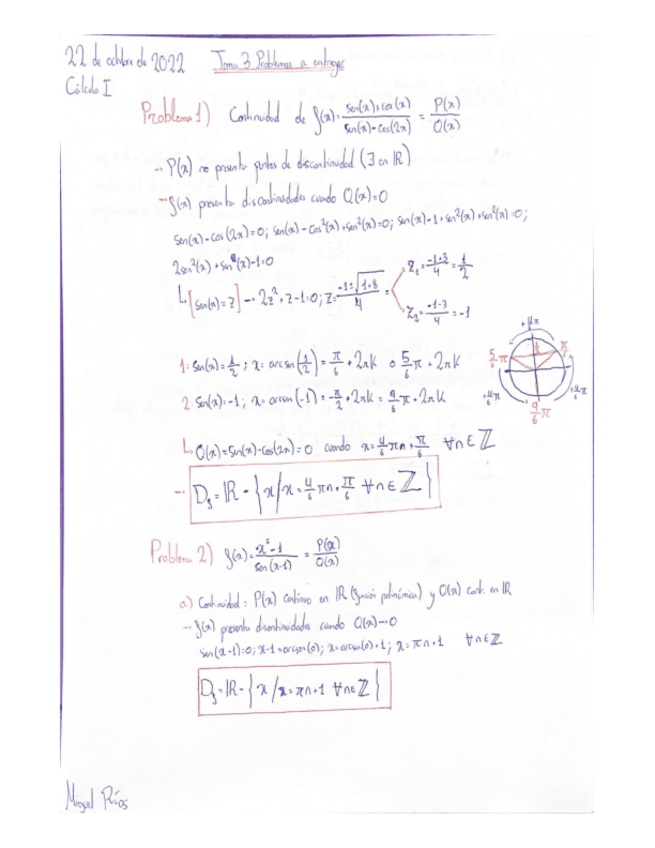 22 de octubre de 2022 Tema 3 Problemas a entregar
Cálculo I
Problema 1) Continuidad de f(x) = (sen(x)+cos(x))/(sen(x)-cos(2x)) = P(x)/Q(x)
→ P(x) no presenta puntos de discontinuidad (∃ en ℝ)
→ f(x) presenta discontinuidades cuando Q(x)=0
sen(x)-cos(2x)=0; sen(x)-cos²(x)+sen²(x)=0; sen(x)-1+sen²(x)+sen²(x)=0;
2sen²(x)+sen(x)-1=0
↳ [sen(x)=z] → 2z²+z-1=0; z=(-1±√(1+8))/4 =
z₁=(-1+3)/4=1/2
z₂=(-1-3)/4=-1
1: sen(x)=1/2; x=arcsen(1/2)=π/6+2πK o 5/6π+2πK
2: sen(x)=-1; x=arcsen(-1)=-π/2+2πK=9/6π+2πK
5/6π
9/6π
↳ Q(x)=sen(x)-cos(2x)=0 cuando x=4/6πn+π/6 ∀n∈ℤ
→ D_f=ℝ-{x/x=4/6πn+π/6 ∀n∈ℤ}
Problema 2) f(x)=(x²-1)/(sen(x-1)) = P(x)/Q(x)
a) Continuidad: P(x) continua en ℝ (función polinómica) y Q(x) cont. en ℝ
→ f(x) presenta discontinuidades cuando Q(x)=0
sen(x-1)=0; x-1=arcsen(0); x=arcsen(0)+1; x=πn+1 ∀n∈ℤ
D_f=ℝ-{x/x=πn+1 ∀n∈ℤ}
Miguel Ríos